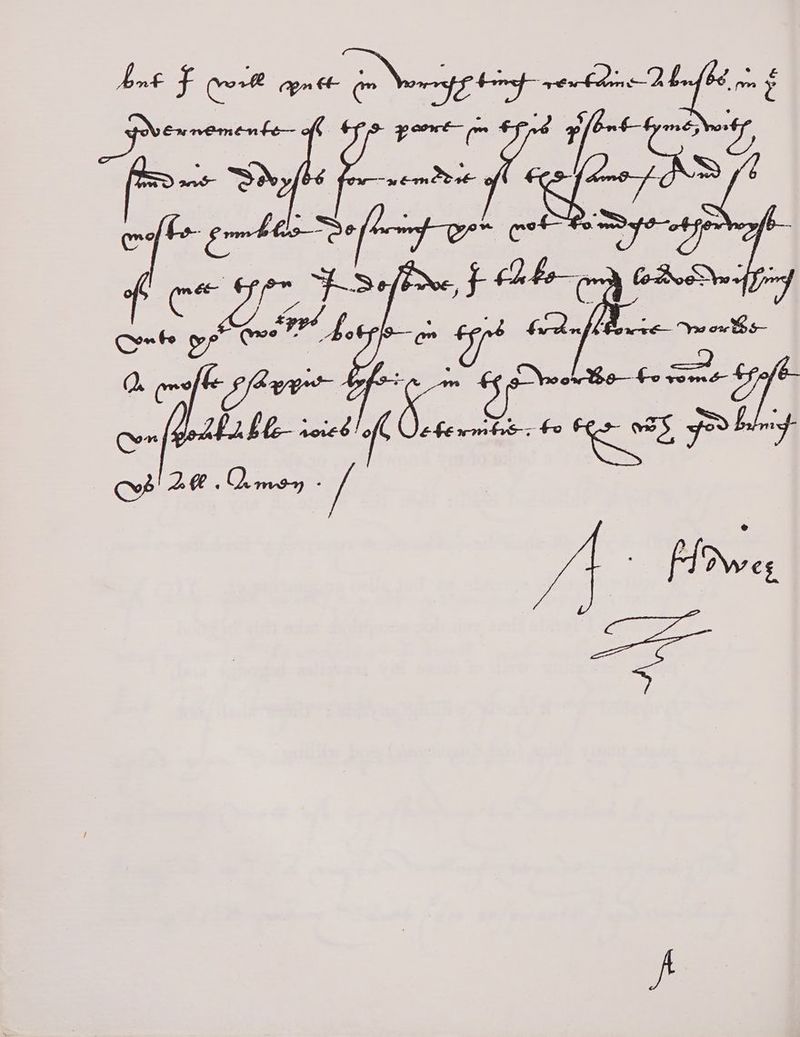 but I will putt in wrighting certaine Abuses in yͤ
governemente of the poore in this p̄sent tyme, with
sundrie Devyses for remedie of the same / And so
moste humblie Desiring you not to iudge otherwyse
of mee then I Deserve, I take my leave wisshing
vnto yoʳ woʳˢ bothe in this transitorie worlde
A moste happie lyfe: & in the worlde to come those
vnspeakable ioies of Aeternitie: to the wᶜʰ god bring
vs All . Amen . /
A . Howes
A